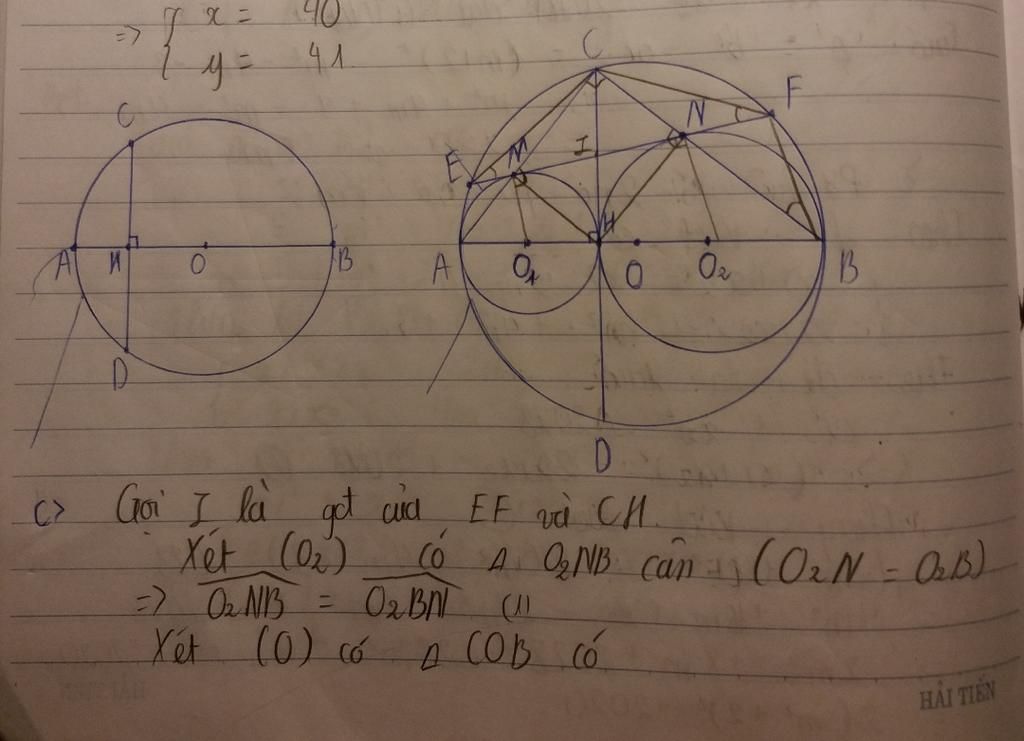 => { x = 40
y = 41
C
A H O B
D
C
E M I N F
A O1 H O O2 B
D
c> Gọi I là gđ của EF và CH
Xét (O2) có Δ O2NB cân (O2N = O2B)
=> O2NB = O2BN (1)
Xét (O) có Δ COB có
HẢI TIẾN